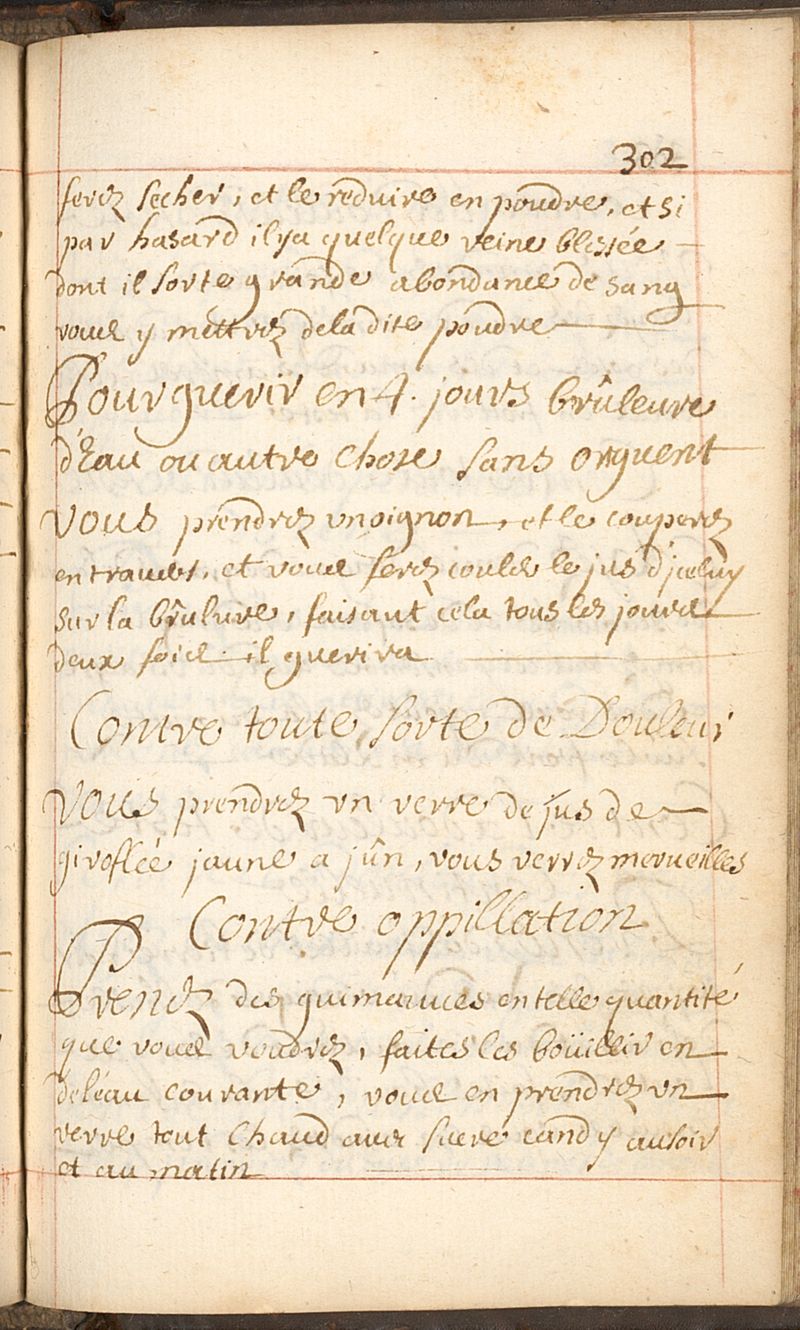 302
ferez secher, et le reduire en poudre, et si
par hasard il ya quelque veine blessée
dont il sorte grande abondance de sang
vous y mettrez dela dite poudre
Pour guerir en 4. jours brûleure
d'Eau ou autre chose sans onguent
Vous prendrez un oignon, et le couperez
en travers, et vous ferez couler le jus d'jceluy
sur la brûlure, faisant cela tous les jours
deux fois il guerira
Contre toute sorte de Douleur
Vous prendrez un verre de jus de
giroflée jaune a jûn, vous verrez merveilles
Contre oppillation
Prenez des guimauves en telle quantité
que vous voudrez, faites les boüillir en
deléau courante, vous en prendrez un
verre tout chaud avec sucre candy au soir
et au matin